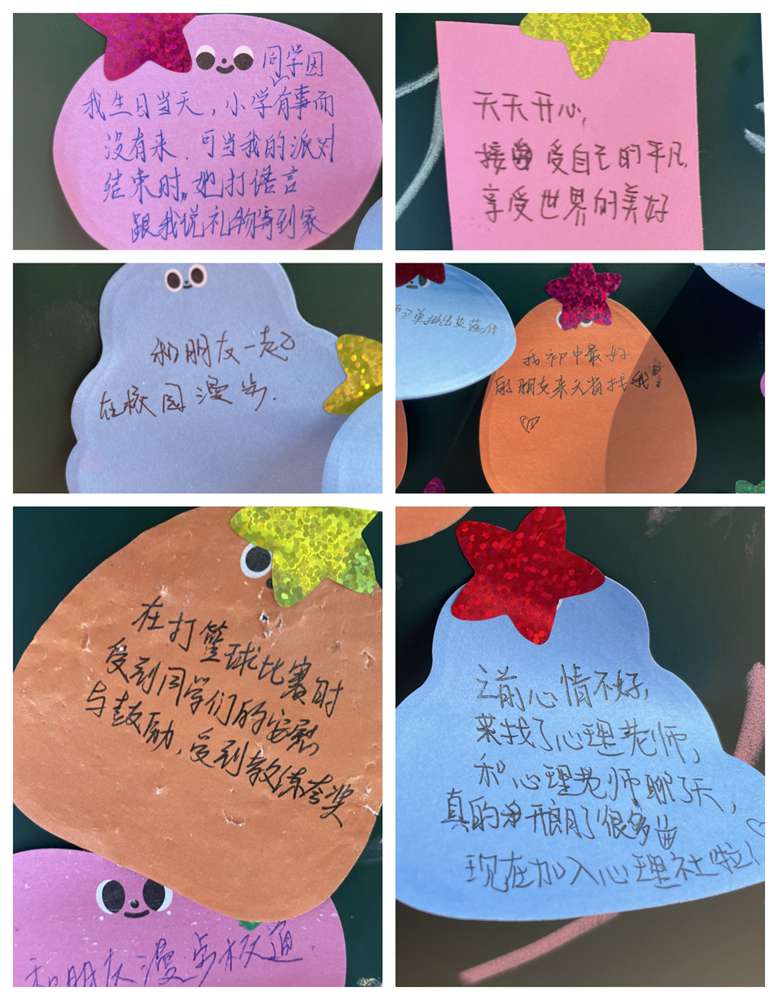 同学因
我生日当天，小学有事而
没有来，可当我的派对
结束时，她打语言
跟我说礼物寄到家
天天开心，
接受自己的平凡，
享受世界的美好
和朋友一起
在校园漫步.
我初中最好
的朋友来天省找我！
在打篮球比赛时
受到同学们的安慰
与鼓励，受到教练夸奖
和朋友漫步极道.
之前心情不好，
来找了心理老师，
和心理老师聊了天，
真的开朗了很多
现在加入心理社啦！